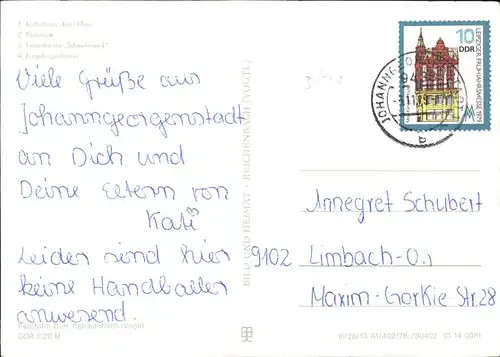 1 Kulturhaus „Karl Marx"
2
3
4
Viele Grüße aus
Johanngeorgenstadt
an Dich und
Deine Eltern von
Kati
Leider sind hier
keine Handballer
anwesend.
BILD UND HEIMAT · REICHENBACH (VOGTL)
10
DDR
LEIPZIGER FRÜHJAHRSMESSE 1979
JOHANNGEO
94
b
Annegret Schubert
9102 Limbach-O.,
Maxim-Gorkie-Str. 28
Reichenbach (Vogtl)
0,20 M
III/26/13 A1/402/78 280402 01 14 0081